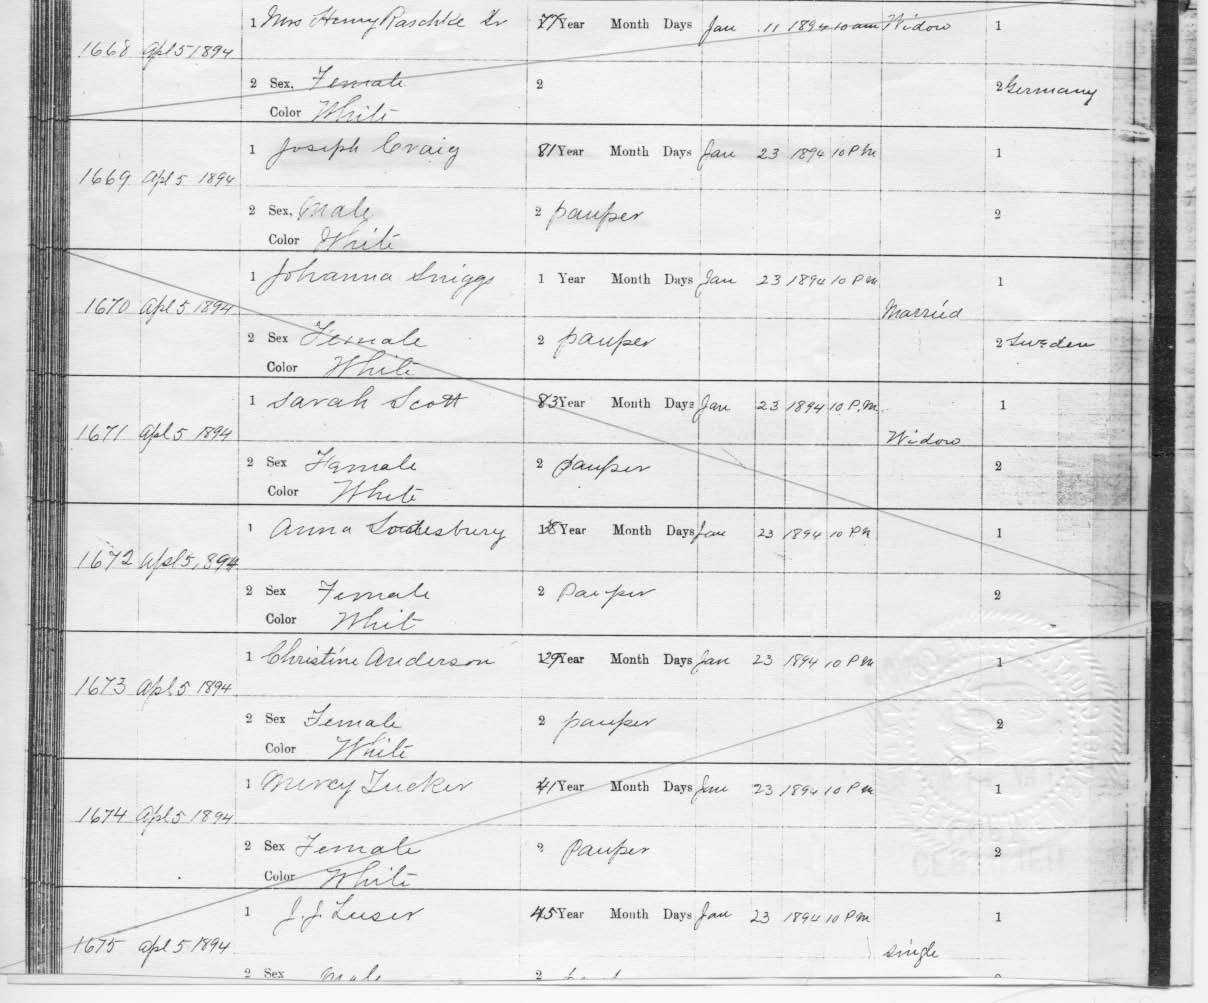 1 Mrs Henry Raschke Sr 77 Year Month Days Jan 11 1894 10 am Widow 1
1668 Apl 5 1894
2 Sex, Female 2 2 Germany
Color White
1 Joseph Craig 81 Year Month Days Jan 23 1894 10 P M 1
1669 Apl 5 1894
2 Sex, Male 2 pauper 2
Color White
1 Johanna Sniggs 1 Year Month Days Jan 23 1894 10 P M 1
1670 Apl 5 1894 Married
2 Sex Female 2 pauper 2 Sweden
Color White
1 Sarah Scott 83 Year Month Days Jan 23 1894 10 P.M. 1
1671 Apl 5 1894 Widow
2 Sex Famale 2 pauper 2
Color White
1 Anna 18 Year Month Days Jan 23 1894 10 P M 1
1672 Apl 5, 894
2 Sex Female 2 Pauper 2
Color Whit
1 Christine Anderson 29 Year Month Days Jan 23 1894 10 P M 1
1673 Apl 5 1894
2 Sex Female 2 pauper 2
Color White
1 Mercy Tucker 41 Year Month Days Jan 23 1894 10 P M 1
1674 Apl 5 1894
2 Sex Female 2 Pauper 2
Color White
CERTIFIED
1 J. J. Luser 45 Year Month Days Jan 23 1894 10 P M 1
1675 Apl 5 1894 single
2 Sex Male 2